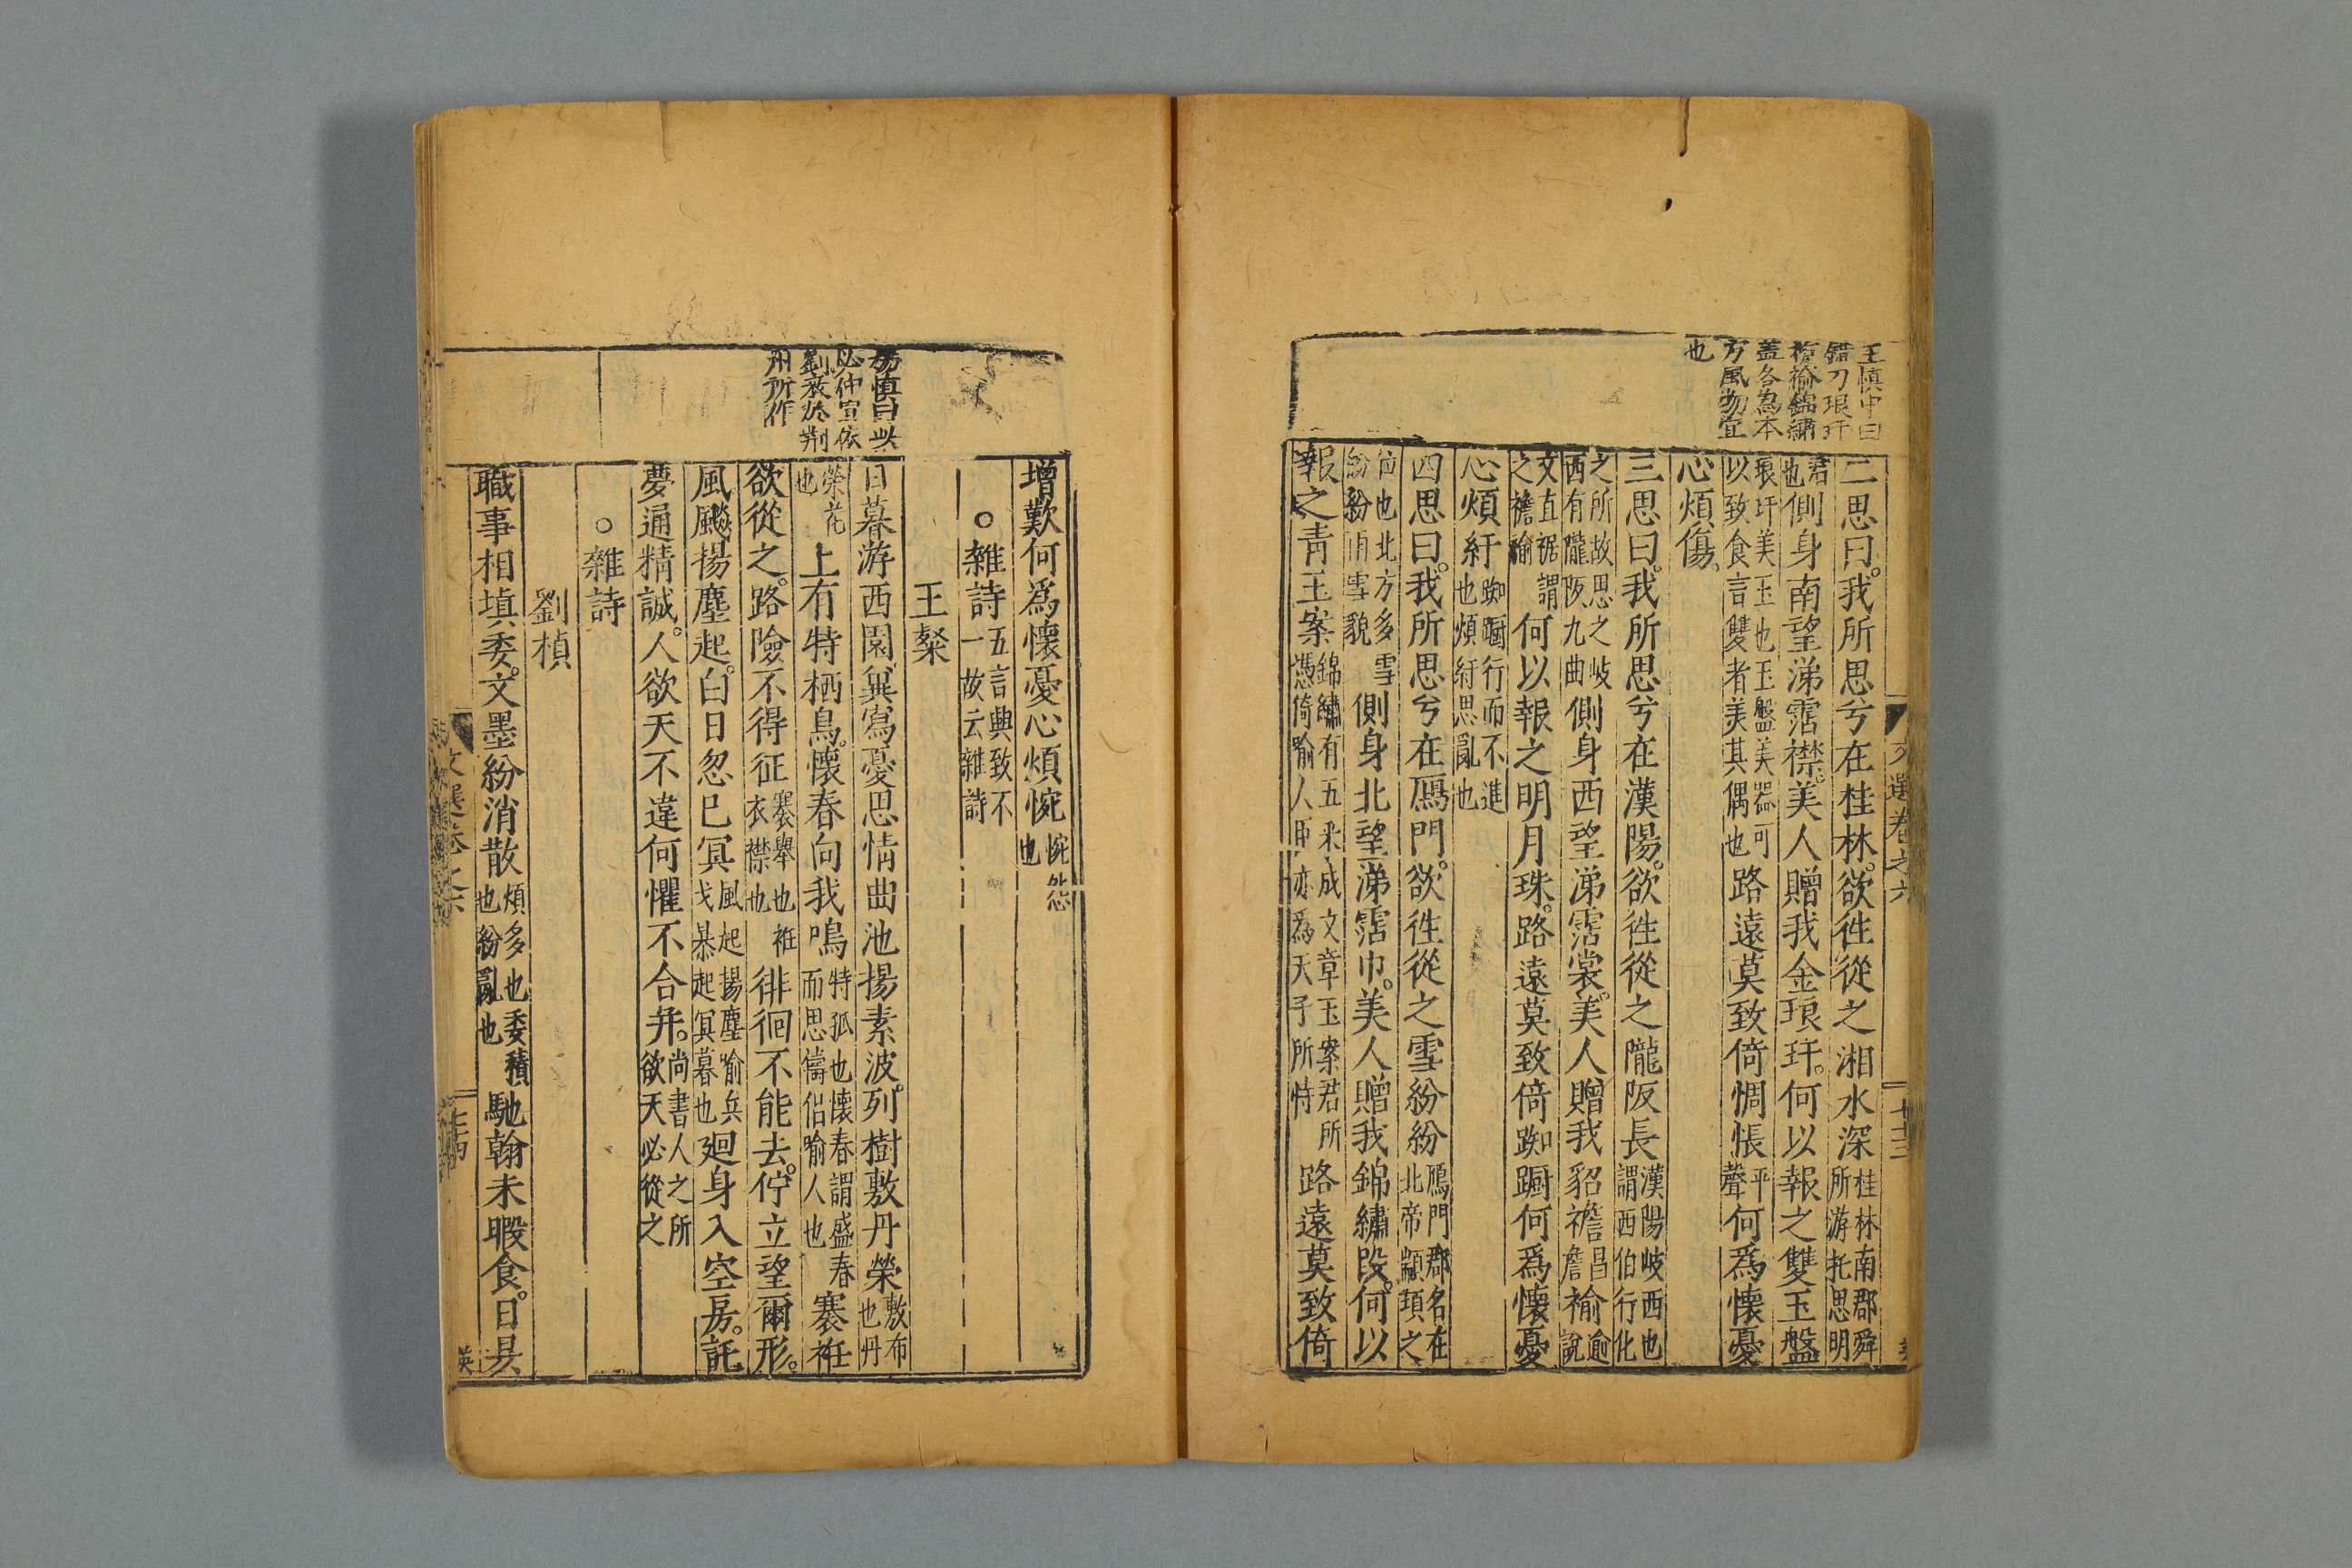 王慎中曰
錯刀琅玕
襜褕錦繡
蓋各為本
方風物宜
也
文選卷之六
七十三
二思曰。我所思兮在桂林。欲徃從之湘水深桂林南郡舜所游托思明
君也側身南望涕霑襟。美人贈我金琅玕。何以報之雙玉盤
琅玕美玉也玉盤美器可以致食言雙者美其偶也路遠莫致倚惆悵平聲何爲懷憂
心煩傷。
三思曰。我所思兮在漢陽。欲徃從之隴阪長漢陽岐西也謂西伯行化
之所故思之岐西有隴阪九曲側身西望涕霑裳。美人贈我貂襜昌詹褕逾說
文直裾謂之襜褕何以報之明月珠。路遠莫致倚踟蹰何爲懷憂
心煩紆踟蹰行而不進也煩紆思亂也
四思曰。我所思兮在鴈門。欲徃從之雪紛紛鴈門郡名在北帝顓頊之
位也北方多雪紛紛雨雪貌側身北望涕霑巾。美人贈我錦繡段。何以
報之青玉案錦繡有五采成文章玉案君所憑倚喻人臣亦爲天子所恃路遠莫致倚
楊慎曰此
必仲宣依
劉表於荆
州所作
增歎何爲懷憂心煩惋惋怨也
○雜詩五言典致不一故云雜詩
王粲
日暮游西園兾寫憂思情曲池揚素波。列樹敷丹榮敷布也丹
榮花也上有特栖鳥。懷春向我鳴特孤也懷春謂盛春而思儔侣喻人也褰衽
欲從之。路險不得征褰舉也衽衣襟也徘徊不能去。佇立望爾形。
風飇揚塵起。白日忽已冥風起揚塵喻兵戈暴起冥暮也廻身入空房。託
夢通精誠。人欲天不違何懼不合并。尚書人之所欲天必從之
○雜詩
劉楨
職事相填委。文墨紛消散煩多也委積也紛亂也馳翰未暇食。日昃
文選卷之六
七十四